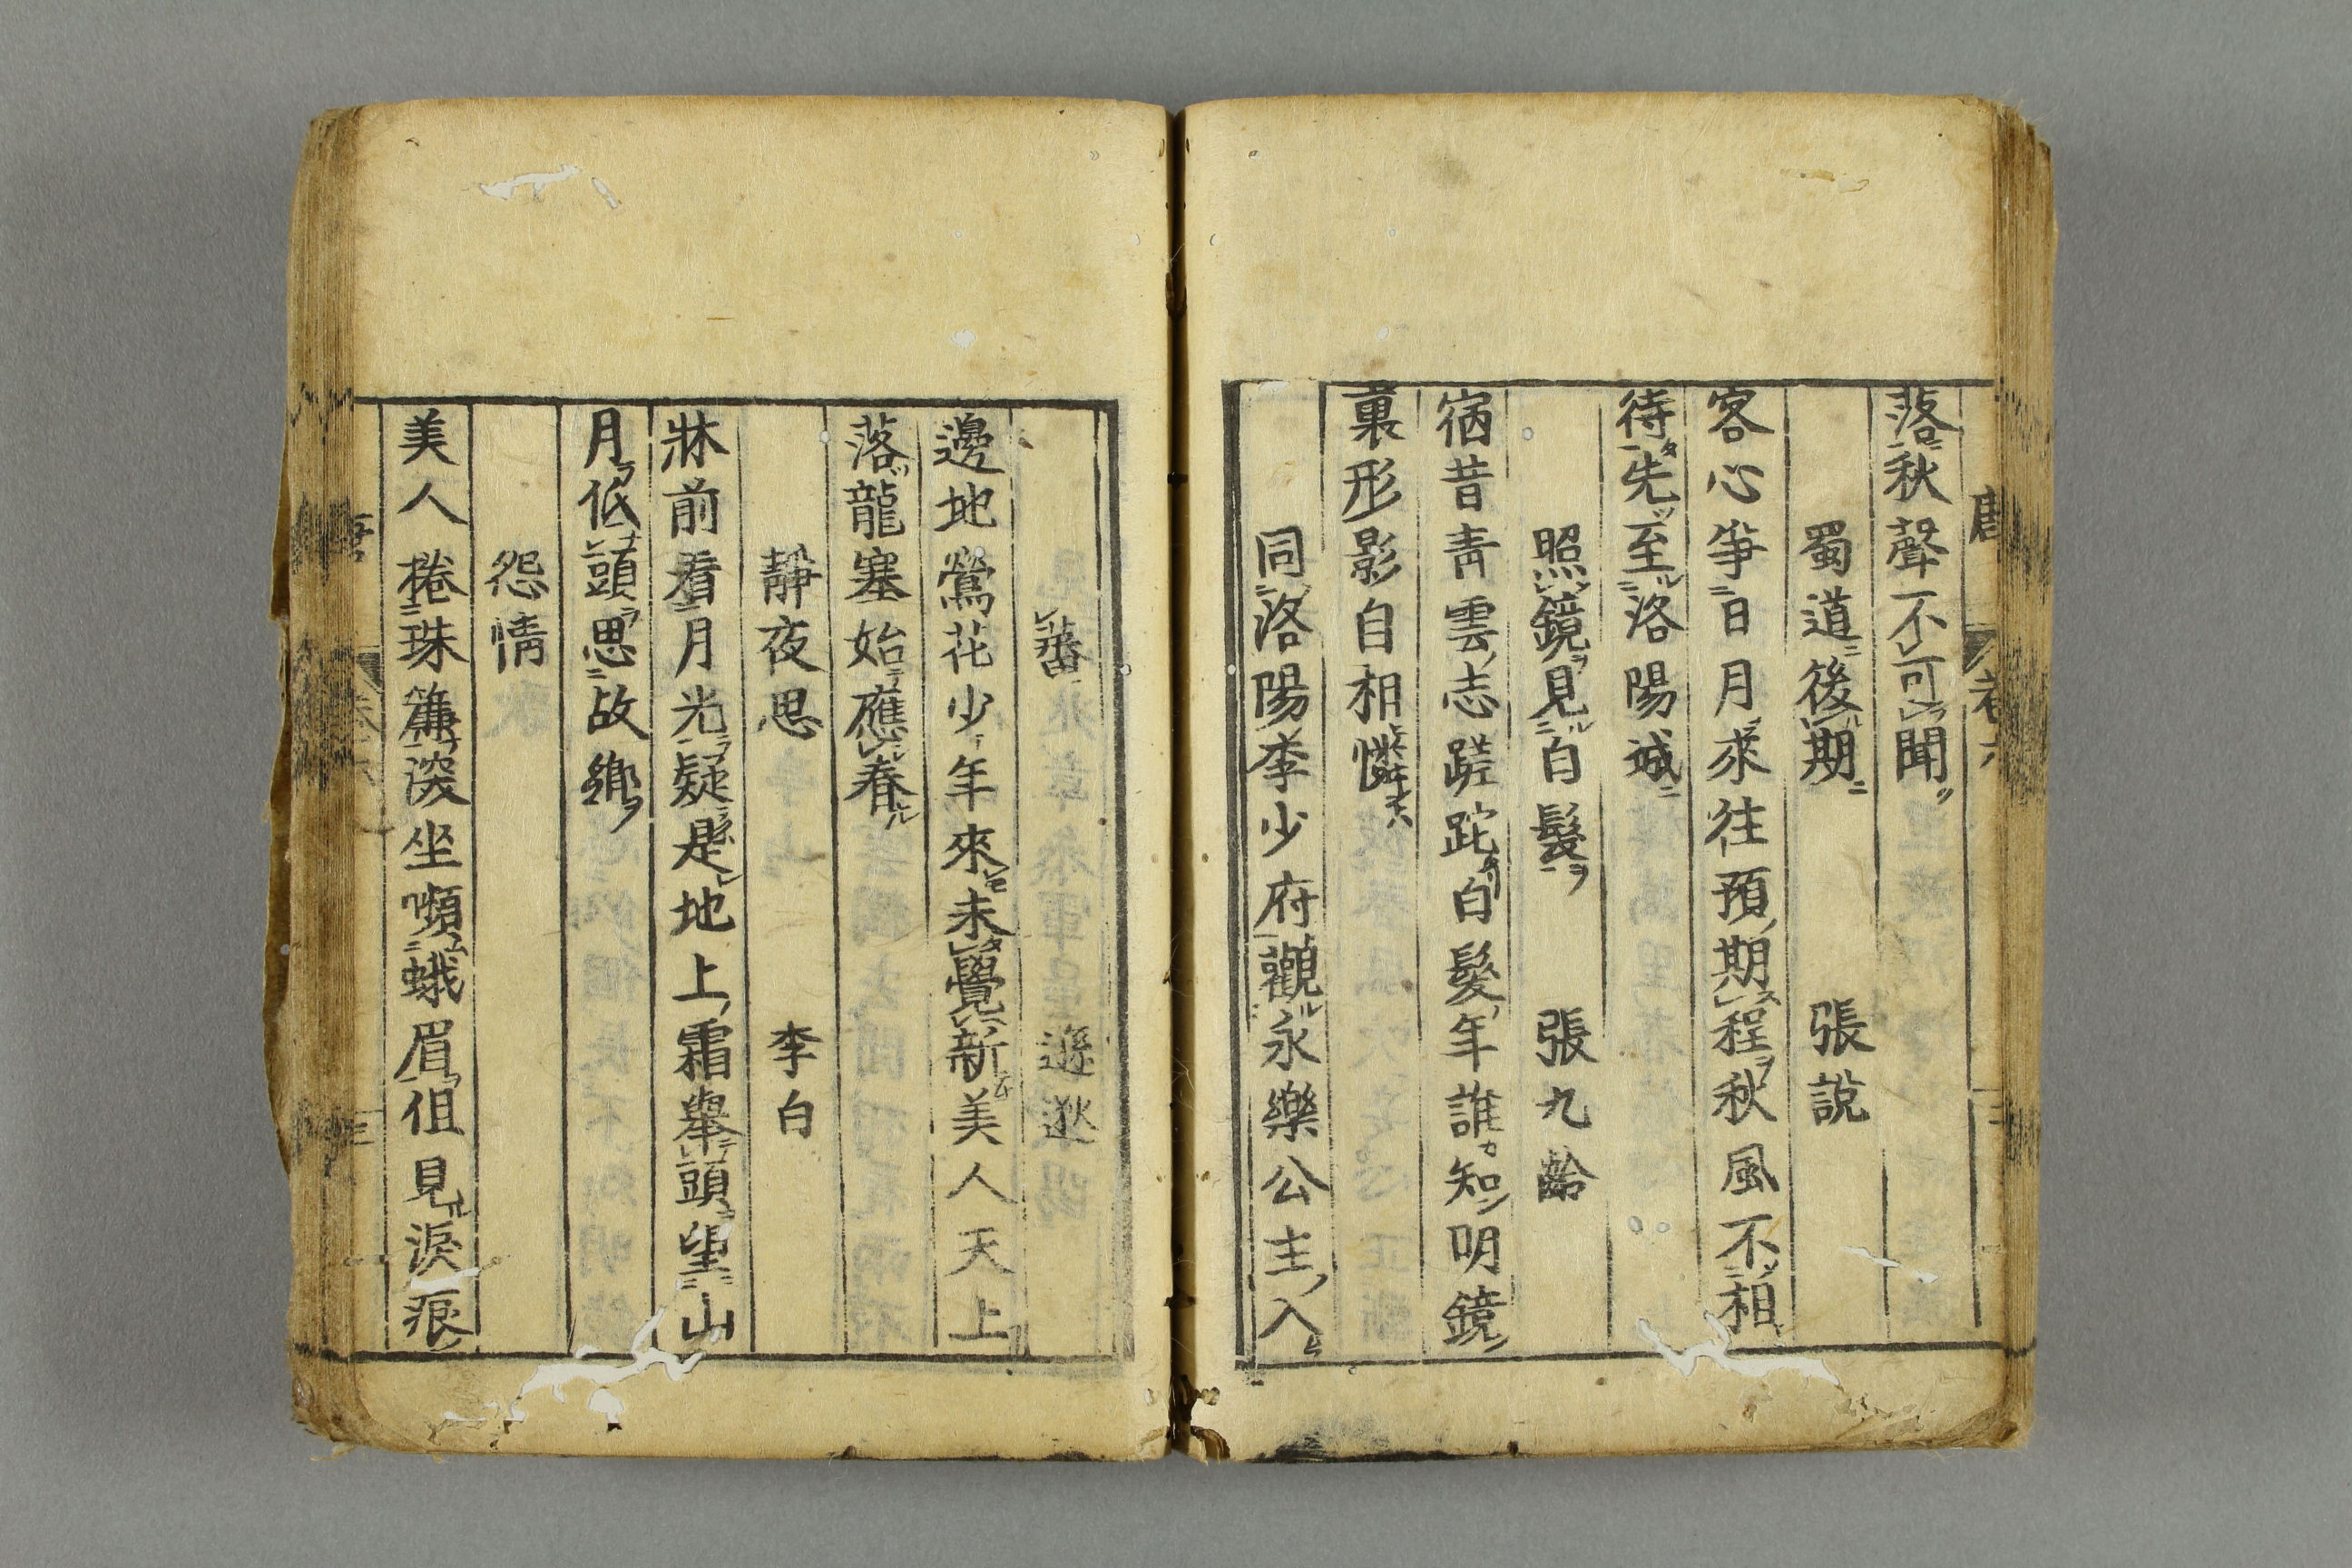 落秋聲不可聞
蜀道後期 張說
客心爭日月來往預期程秋風不相
待先至洛陽城
照鏡見白髮 張九齡
宿昔青雲志蹉跎白髮年誰知明鏡
裏形影自相憐
同洛陽李少府觀永樂公主入
蕃 遜逖
邊地鶯花少年來未覺新美人天上
落龍塞始應春
靜夜思 李白
牀前看月光疑是地上霜舉頭望山
月低頭思故鄉
怨情
美人捲珠簾深坐嚬蛾眉但見淚痕